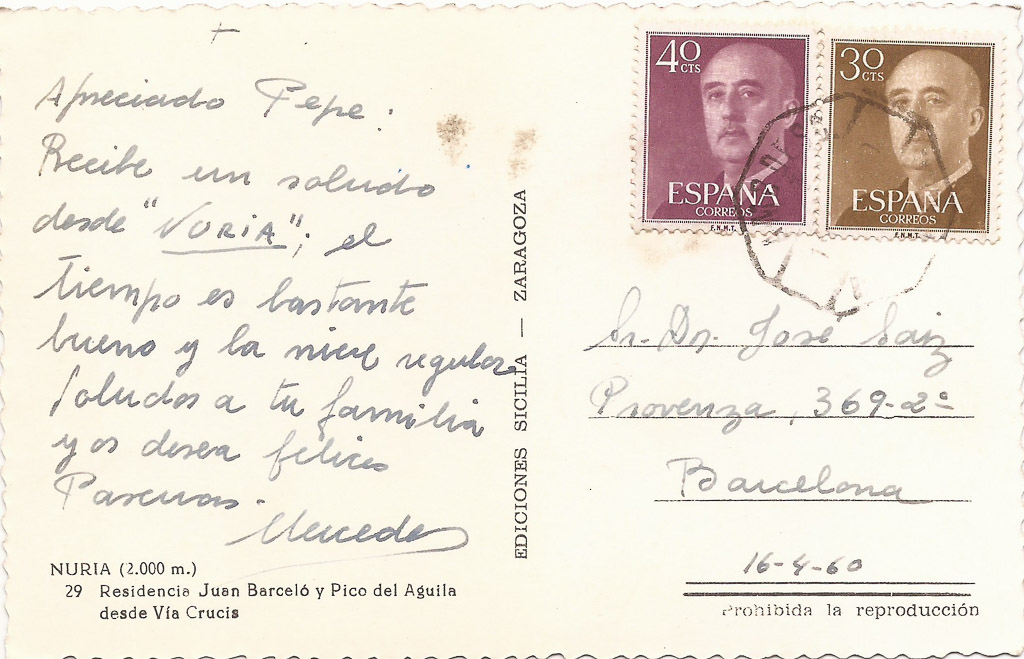 +
Apreciado Pepe:
Recibe un saludo
desde "NURIA"; el
tiempo es bastante
bueno y la nieve regular
Saludos a tu familia
y os desea felices
Pascuas.
Mercedes
NURIA (2.000 m.)
29 Residencia Juan Barceló y Pico del Aguila
desde Vía Crucis
EDICIONES SICILIA — ZARAGOZA
40 CTS
ESPAÑA
CORREOS
F.N.M.T.
30 CTS
ESPAÑA
CORREOS
F.N.M.T.
Sr. Dr. José Saiz
Provenza, 369-2º
Barcelona
16-4-60
Prohibida la reproducción